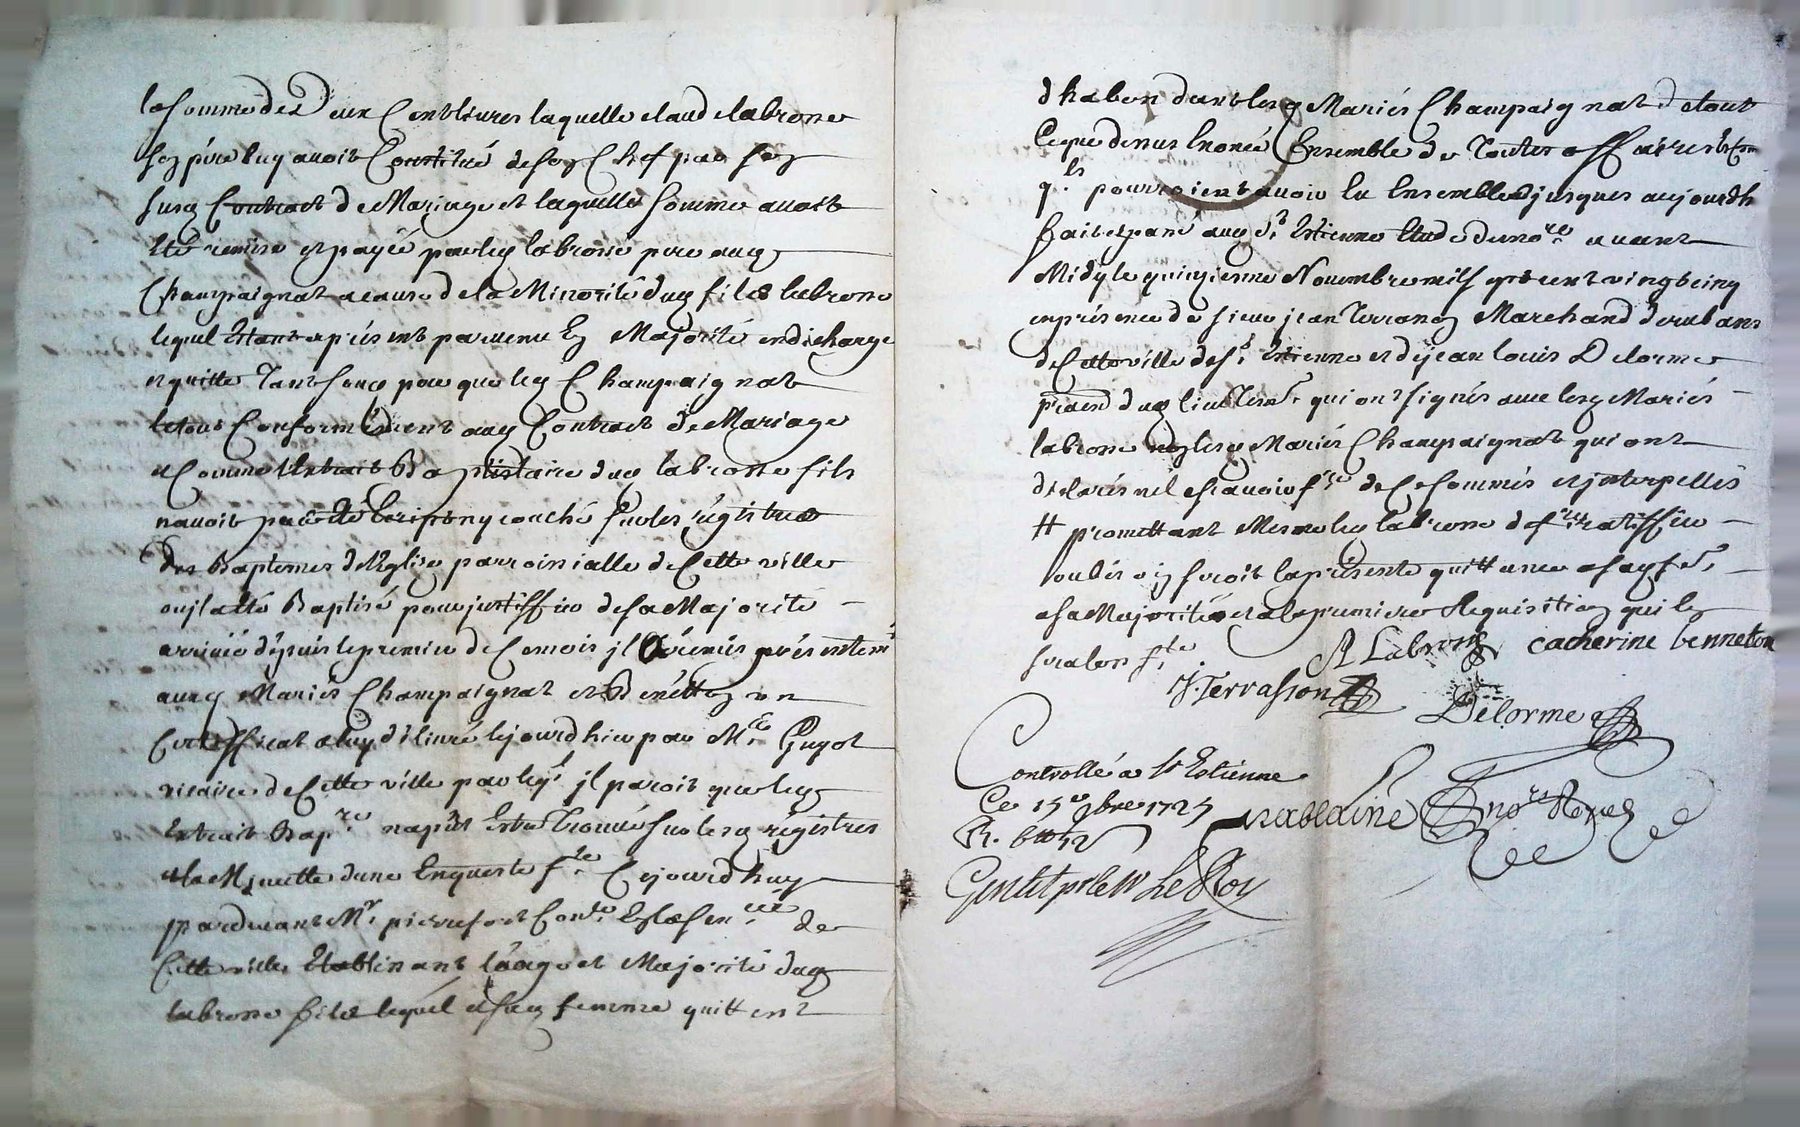 la somme de Deux Cent livres laquelle claude labrosse
son pere luy avoit Constitué de son Chef par son
susd Contract de Mariage et laquelle somme avoit
eté remise et payée par led labrosse pere aud
Champaignat a cause de la Minorité dud fils labrosse
lequel Estant apnt parvenu En Majorité en décharge
et quitte Tant son pere que led Champaignat
le tout Conformément aud Contract de Mariage
et Comme l'Extrait Baptistaire dud labrosse fils
navoit pas eté Escript ny couché sur les régistres
des Baptemes de l'Eglise parroissialle de Cette ville
ou jl a été Baptisé pour justiffier de sa Majorité
arrivée dépuis le premier de Ce mois jl a rémis présentemt
auxd Mariés Champaignat et Bennétton un
Certifficat a luy délivré cejourdhuy par Mre Guyot
vicaire de Cette ville par leql jl paroit que led
Extrait Bapre na pas Esté Trouvé sur lesd régistres
et la Minutte dune Enqueste fte Cejourdhuy
pardevant Mr pierrefort Conr En la Senée de
Cette ville Establissant l'aage et Majorité dud
labrosse fils lequel et sad femme quittent
dhabondant lesd Mariés Champaignat de tout
Ce que dessus Enoncé Ensemble de Toutes affaires
qls pourroient avoir Eu Ensemble jusques aujourdh
fait et passé aud St Estienne Etude du nore avant
Midy le quinzieme Novembre mil sept cent vingt cinq
en présence de sieur jean Terrasson Marchand de rubans
de Cette ville de St Estienne et de jean louis Delorme
pratn dud lieu Tesm qui ont signés avec lesd Mariés
labrosse non lesd Mariés Champaignat qui ont
déclarés ne scavoir fre de Ce sommés et jnterpellés
# promettant Mesme led labrosse de fre ratiffier
la présente quittance a sad fe
a sa Majorité et a la premiere Requisition qui luy
sera lors fte
A Labrosse catherine benneton
J. Terrasson
Delorme
Controllé a St Estienne
Ce 15e 9bre 1725
R.
nore Royal
Le Roy